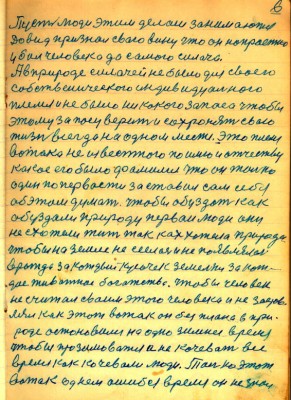 6
Пусть люди этим делом занимаются
Довид признал свою вину что он напрасно
убил человека до самого
А в природе не было для своего
собственического индивидуального
племя и не было никокого запаса чтобы
этому за поверить и сохронять свою
жизнь всегда на одном месте. Это племя
вожака не известного по имю и отчеству
какое его было фомилия это он только
один по первости заставил сам себе
об этом думать. чтобы обуздат как
обуздали природу первои люди они
не схотели жит так как хотела природа
чтобы на земле не сеелас и не появлялас
вражда за кожный кусочек земельки за кож-
дае животнае богатство. чтобы человек
не считал своим этого человека и не задов
лял как этот вожак он без плана в при-
роде остоновился на одно зимнее время
чтобы прозимовать а не кочеват все
время как кочевали люди. Так на этот
вожак однем ошибся время он не знал